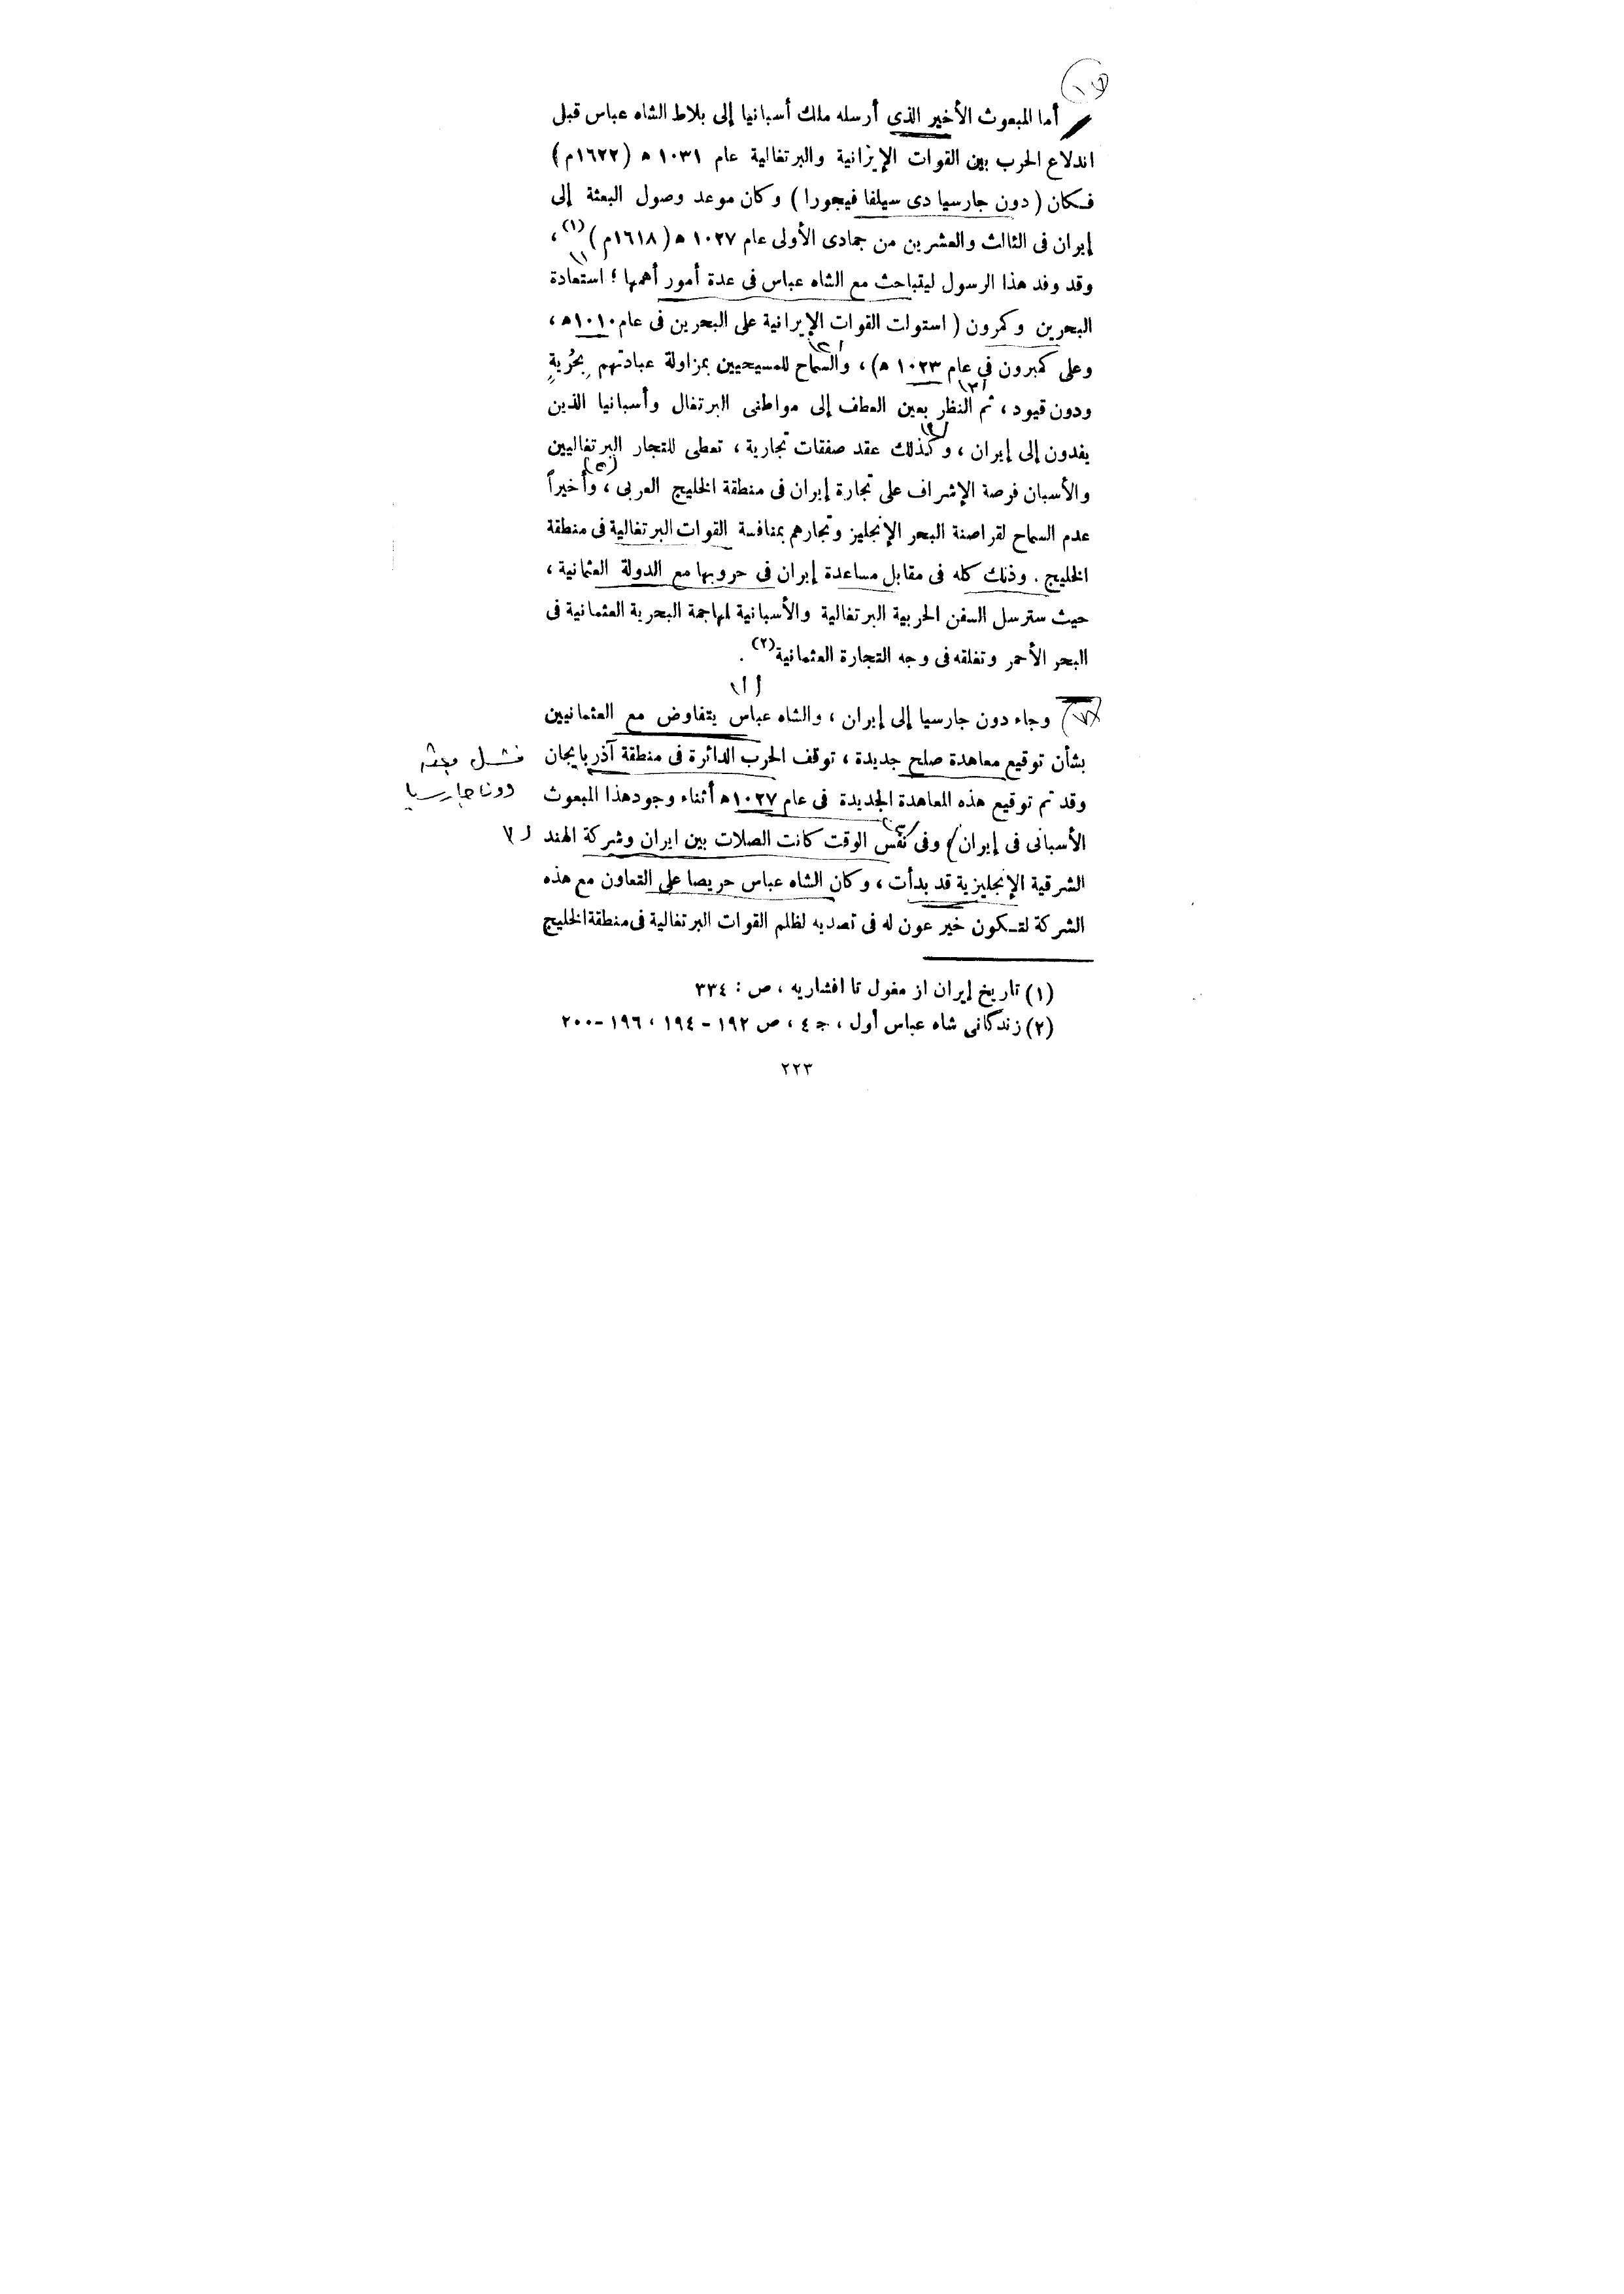 أما المبعوث الأخير الذى أرسله ملك أسبانيا إلى بلاط الشاه عباس قبل
اندلاع الحرب بين القوات الإيرانية والبرتغالية عام ١٠٣١ ه (١٦٢٢م)
فكان (دون جارسيا دى سيلفا فيجورا) وكان موعد وصول البعثة إلى
إيران فى الثالث والعشرين من جمادى الأولى عام ١٠٢٧ ه (١٦١٨م)(١)،
وقد وفد هذا الرسول ليتباحث مع الشاه عباس فى عدة أمور أهمها؛ استعادة
البحرين وكمرون (استولت القوات الإيرانية على البحرين فى عام ١٠١٠ه،
وعلى كمبرون في عام ١٠٢٣ ه)، والسماح للمسيحيين بمزاولة عبادتهم بِحُريةٍ
ودون قيود، ثم النظر بعين العطف إلى مواطنى البرتغال وأسبانيا الذين
يفدون إلى إيران، وكذلك عقد صفقات تجارية، تعطى للتجار البرتغاليين
والأسبان فرصة الإشراف على تجارة إيران فى منطقة الخليج العربى، وأخيراً
عدم السماح لقراصنة البحر الإنجليز وتجارهم بمنافسة القوات البرتغالية فى منطقة
الخليج. وذلك كله فى مقابل مساعدة إيران فى حروبها مع الدولة العثمانية،
حيث سترسل السفن الحربية البرتغالية والأسبانية لمهاجمة البحرية العثمانية فى
البحر الأحمر وتغلقه فى وجه التجارة العثمانية(٢).
وجاء دون جارسيا إلى إيران، والشاه عباس يتفاوض مع العثمانيين
بشأن توقيع معاهدة صلح جديدة، توقف الحرب الدائرة فى منطقة آذربايجان
وقد تم توقيع هذه المعاهدة الجديدة فى عام ١٠٢٧ه أثناء وجود هذا المبعوث
الأسبانى فى إيران، وفى نفس الوقت كانت الصلات بين ايران وشركة الهند
الشرقية الإنجليزية قد بدأت، وكان الشاه عباس حريصا على التعاون مع هذه
الشركة لتكون خير عون له فى تصديه لظلم القوات البرتغالية فى منطقة الخليج
فشل
دون جارسيا
(١) تاريخ إيران از مغول تا افشاريه، ص: ٣٣٤
(٢) زندگانى شاه عباس أول، ج ٤، ص ١٩٢ - ١٩٤، ١٩٦ - ٢٠٠
٢٢٣